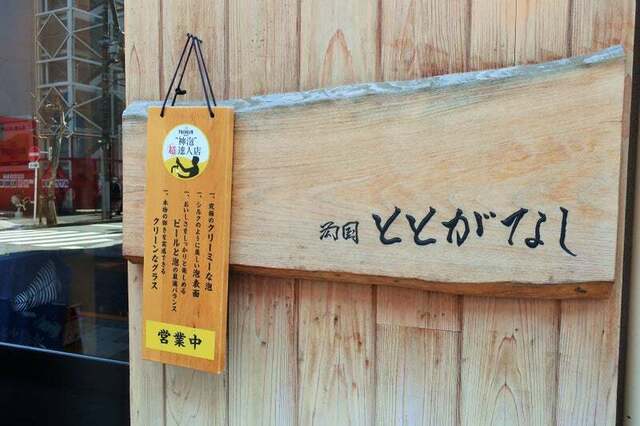 "神泡"
超達人店
一、究極のクリーミーな泡
一、シルクのように美しい泡表面
一、おいしさをしっかりと楽しめる
ビールと泡の最適バランス
一、本物の輝きを実感できる
クリーンなグラス
営業中
ととがなし